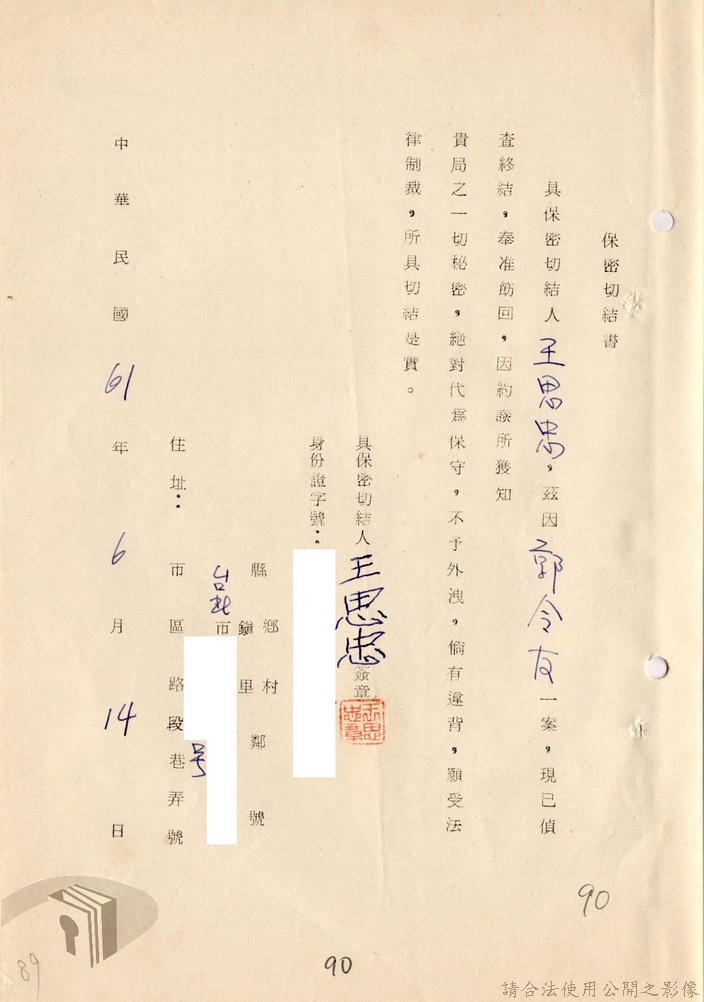 保密切結書
具保密切結人王思忠，茲因郭令友一案，現已偵
查終結，奉准飭回，因約談所獲知
貴局之一切秘密，絕對代為保守，不予外洩，倘有違背，願受法
律制裁，所具切結是實。
具保密切結人王思忠簽章
王思忠章
身份證字號：
縣 鄉鎮 村里 鄰 號
住址：
台北市
市 區 路 段 巷 弄 號
号
中華民國61年6月14日
90
90
89
請合法使用公開之影像